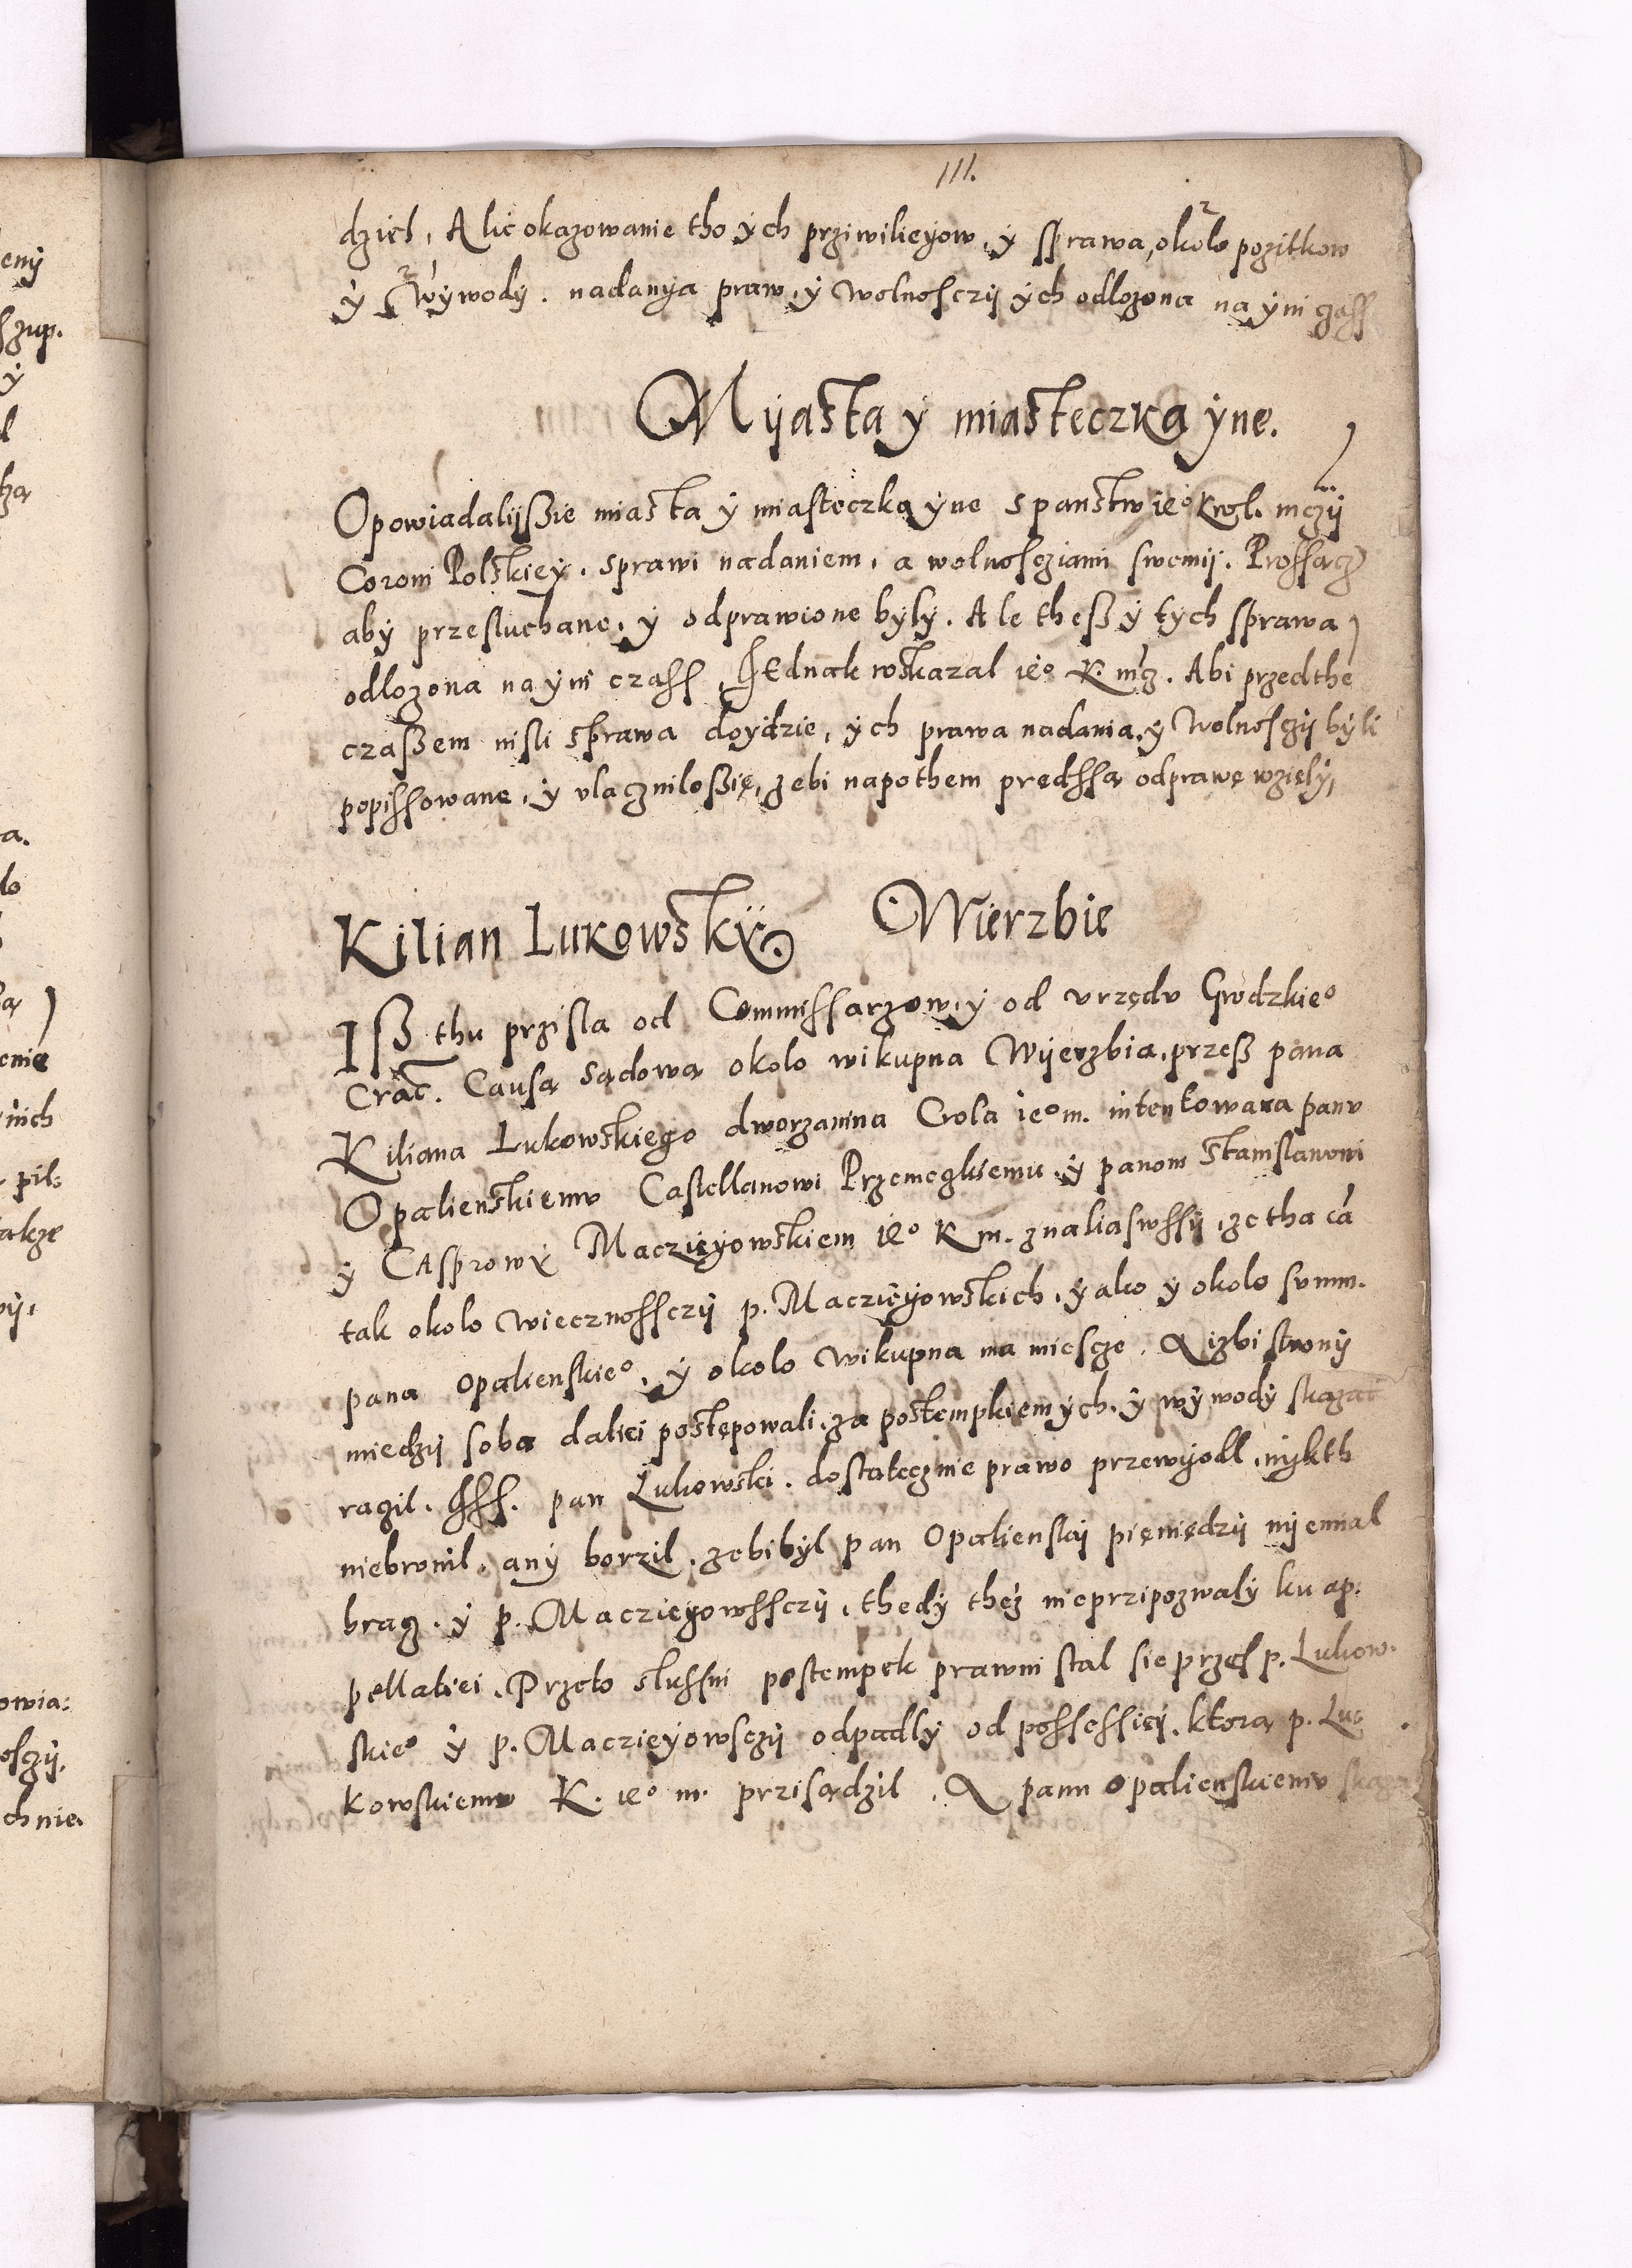 111.
dziel, Alie okazowanie tho ých prziwilieyow, ý sprawa, okolo pozitkow
ý wýwody. nadanya praw, ý wolnosczÿ ých odlozona na ýni czass
Mÿasta ý miasteczka ýne.
Opowiadalÿßie miasta ý miasteczka ýne s panstw ieº Krol. mczÿ
Coroni Polskieý, sprawi nadaniem, a wolnoscziami swemÿ. Prossącz
abý przesłuchane, ý odprawione býlý. Ale theß ý tých sprawa
odlozona na ýni czass, Jednak wskazal ieº K. mcz. Abi przed the
czaßem nisli sprawa doýdzie, ých prawa nadania, ý wolnosczÿ býli
popissowane, ý vlaczniloßię, zebi napothem prędssa odprawę wzięlý,
Kilian Lukowskÿ. Wierzbie
Iß thu przisla od Commissarzow, ý od vrzędv Grodzkieº
Crac. Causa sądowa okolo wikupna Wÿerzbia, przeß pana
Kiliana Lukowskiego dworzanina Crola ieº m. intentowana panv
Opalienskiemv Castellanowi Przemęgkiemu, ý panom Stanislawowi
ý Casprowÿ Maczieýowskiem ieº K m. znaliaswssÿ, ze tha ca
tak okolo wiecznossczÿ p. Maczieýowskich, ýako ý okolo summ.
pana opalienskieº, ý okolo wikupna ma miescze, A izbi stronÿ
miedzÿ soba daliei postępowali, za postempkiem ých, ý wýwodý skazac
razil. Iss. pan Lukowski. dostatecznie prawo przewÿodl, nýkth
niebronil, aný borzil, zebi býl pan Opalienskÿ pieniędzÿ nÿemial
bracz, ý p. Maczieýowssczÿ, thedý theż nieprzipozwalý ku ap.
pellatiei, Przeto slussni postempek prawni stal sie przes p. Lukow.
skieº ý p. Maczieýowsczÿ odpadlý od possessieÿ, ktora p. Lu:
kowskiemv K. ieº m. przisądzil, A panu opalienskiemv